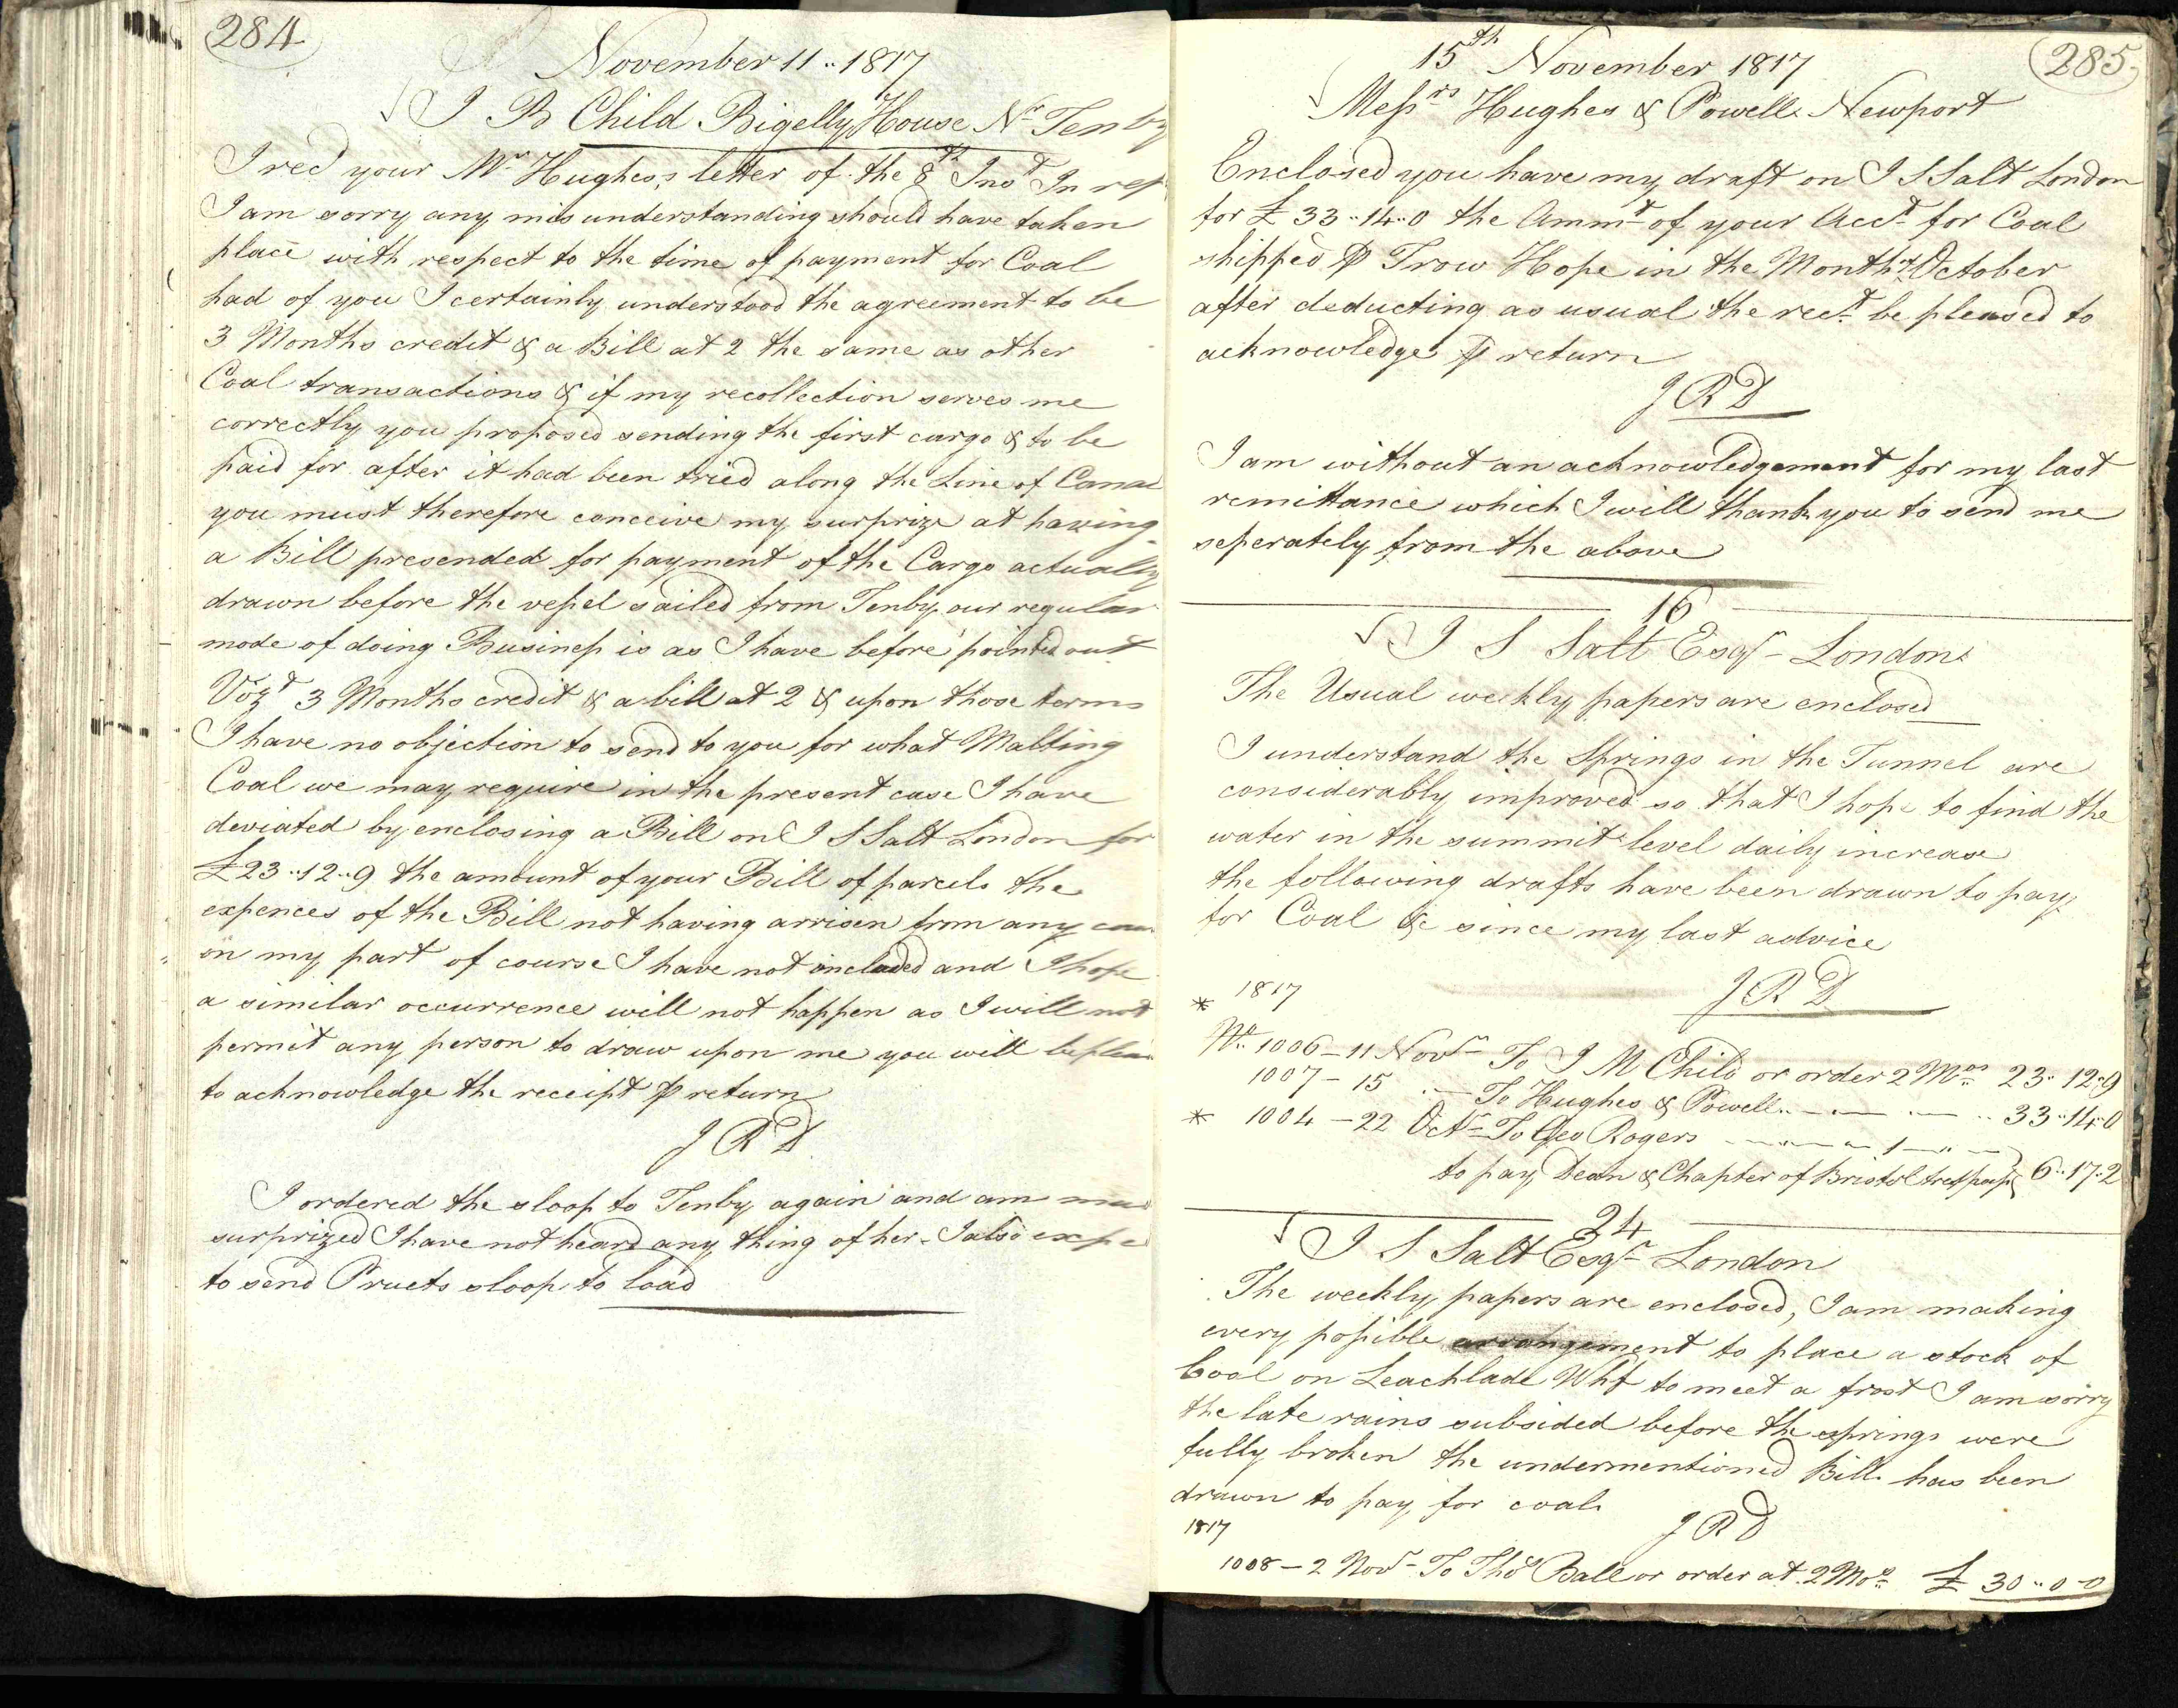 284
November 11 .. 1817
J B Child Bigelly House Nr Tenby
I recd your Mr Hughes,s letter of the 8th Inst In rep
I am sorry any mis understanding should have taken
place with respect to the time of payment for Coal
had of you I certainly understood the agreement to be
3 Months credit & a Bill at 2 the same as other
Coal transactions & if my recollection serves me
correctly you proposed sending the first cargo & to be
paid for after it had been tried along the Line of Canal
you must therefore conceive my surprize at having
a Bill presended for payment of the Cargo actually
drawn before the vessel sailed from Tenby, our regular
mode of doing Business is as I have before pointed out
Vizt 3 Months credit & a bill at 2 & upon those terms
I have no objection to send to you for what Malting
Coal we may require in the present case I have
deviated by enclosing a Bill on J S Salt London for
£23..12..9 the amount of your Bill of parcels the
expences of the Bill not having arrisen from any
on my part of course I have not included and I hope
a similar occurrence will not happen as I will not
permit any person to draw upon me you will be pleas
to acknowledge the receipt ⅌ return
J R D
I ordered the sloop to Tenby again and am mu
surprized I have not heard any thing of her - I also expe
to send Pruets sloop to load
285
15th November 1817
Messrs Hughes & Powell Newport
Enclosed you have my draft on J S Salt London
for £33..14..0 the Ammt of your Acct for Coal
shipped ⅌ Trow Hope in the Month of October
after deducting as usual the rect be pleased to
acknowledge ⅌ return
J R D
I am without an acknowledgement for my last
remittance which I will thank you to send me
seperately from the above
16
J S Salt Esqr London
The Usual weekly papers are enclosed
I understand the Springs in the Tunnel are
considerably improved so that I hope to find the
water in the summit level daily increase
the following drafts have been drawn to pay
for Coal &c since my last advice
J R D
* 1817
No 1006 - 11 Novr To J M Child or order 2 Mos 23..12..9
1007 - 15 .. To Hughes & Powell .. 33..14..0
* 1004 - 22 Octr To Geo Rogers 1
to pay Dean & Chapter of Bristol 6..17..2
24
J S Salt Esqr London
The weekly papers are enclosed, I am making
every possible arrangement to place a stock of
Coal on Leachlade Whf to meet a frost I am sorry
the late rains subsided before the springs were
fully broken the undermentioned Bill has been
drawn to pay for coal
J R D
1817
1008 - 2 Novr To Thos Ball or order at 2 Mos £ 30..0-0